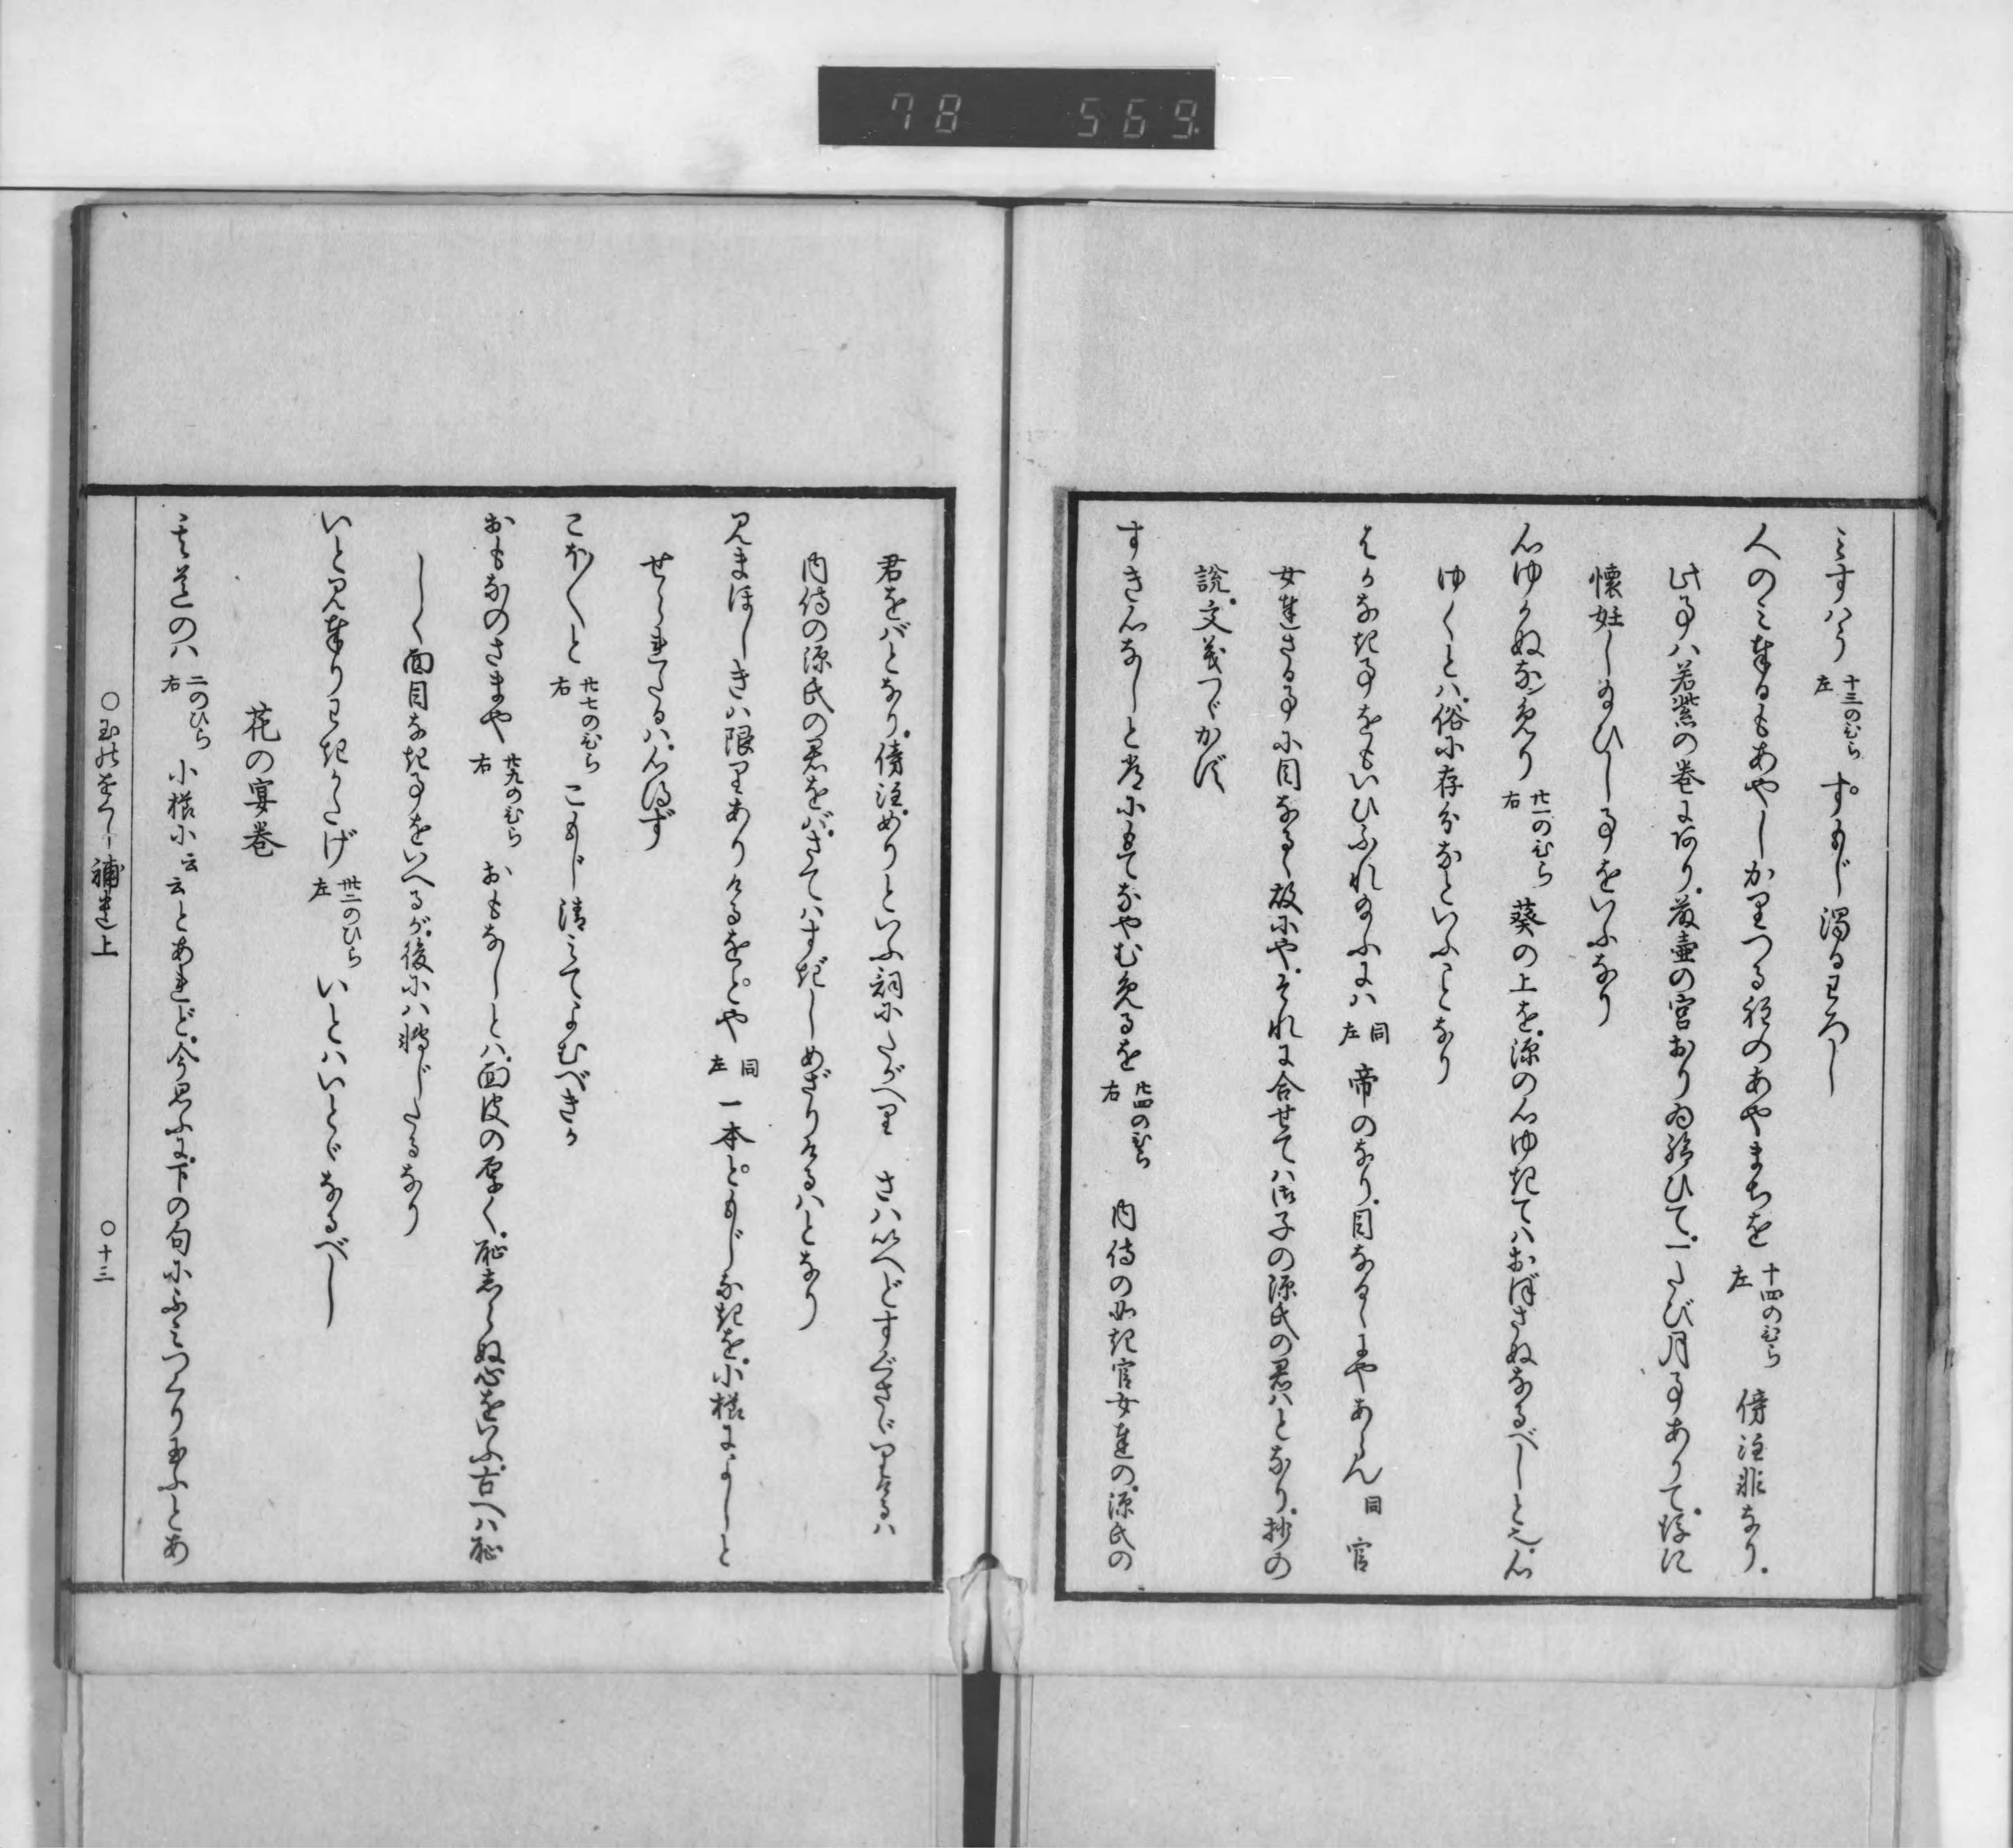 78 569
みずハう 十三のひら左 すもじ濁るわろし
人のみ奉るもあやしかりつる程のあやまちを 十四のひら左 傍注非なり。
此事ハ若紫の巻にあり。藤壷の宮おりゐ給ひて。一たび月事ありて。後に
懐妊し給ひし事をいふなり
心ゆかぬなンめり 廿一のひら右 葵の上を。源の心ゆきてハおぼさぬなるべしと也。心
ゆくとハ。俗に存分なといふことなり
はかなき事をもいひふれ給ふにハ 同左 帝のなり。目なるゝにやあらん 同 官
女達さる事に目なるゝ故にや。それに合せてハ御子の源氏の君ハとなり。抄の
説。文義つゞかず
すき心なしと常にもてなやむめるを 廿四のひら右 内侍の如き官女達の。源氏の
君をバとなり。傍注。めりといふ詞にたがへり さハいへどすぐさゞりけるハ
内侍の源氏の君をバ。さてハすぐしめざりけるハとなり
見まほしきハ限りありけるをとや 同左 一本ともじなきを。小櫛によしと
せられたるハ。心得ず
こほ〳〵と 廿七のひら右 こもじ清みてよむべきか
おもなのさまや 廿九のひら右 おもなしとハ。面皮の厚く。恥しらぬ心をいふ。古へハ恥
しく面目なき事をいへるが。後にハ転じたるなり
いと見奉りわきがたげ 卅二のひら左 いとハいとゞなるべし
花の宴巻
みこたちのハ 二のひら右 小櫛に云云とあれど。今思ふに。下の句にふみつくり給ふとあ
○玉のをぐし補遺上 ○十三